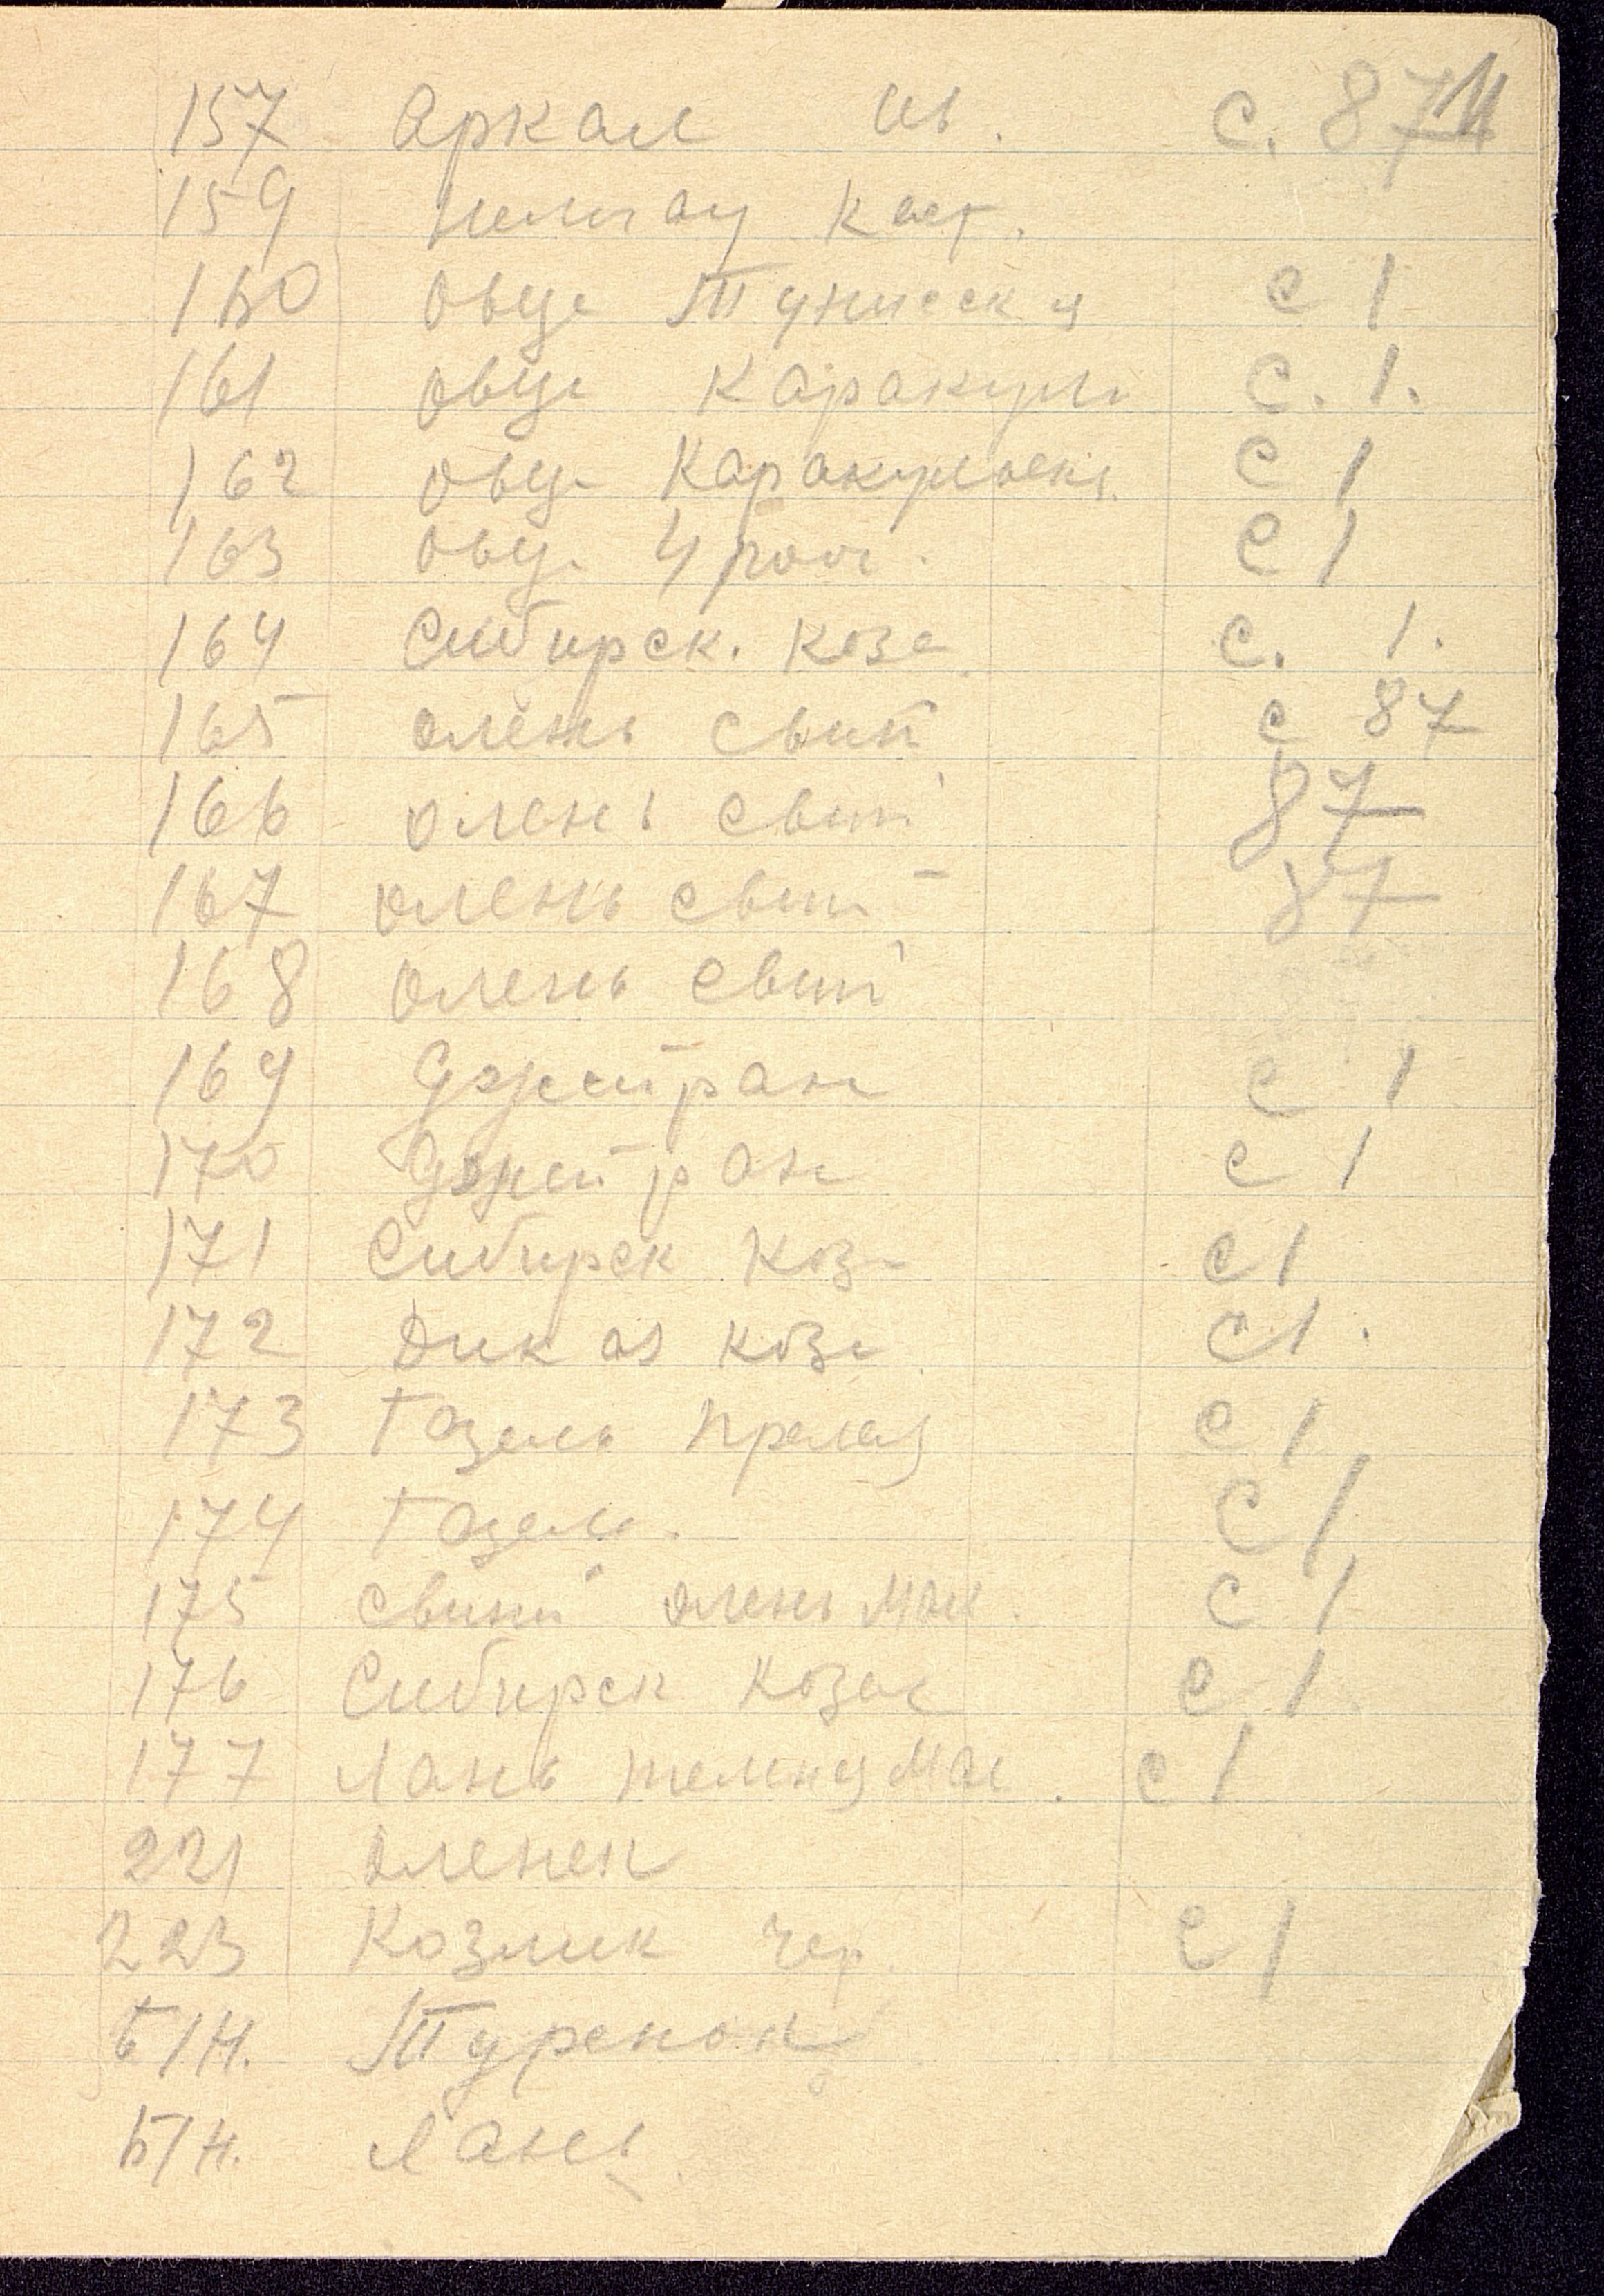 157 Аркал с. 87
159 Нильгау каст.
160 Овца Тунисск я с 1
161 Овца Каракуль с. 1.
162 Овца Каракульск с 1
163 Овца 4 рог. с 1
164 Сибирск. коза с. 1.
165 Олень свин с 87
166 Олень свин 87
167 Олень свин 87
168 Олень свин
169 Джейран с 1
170 Джейран с 1
171 Сибирск Коза с 1
172 Дикая коза с 1.
173 Газель с 1
174 Газель с 1
175 Свиной олень мал. с 1
176 Сибирск с 1
177 Лань темная мал. с 1
221 Оленек
223 Козлик чер с 1
Б/Н. Туренок
Б/Н. Лань